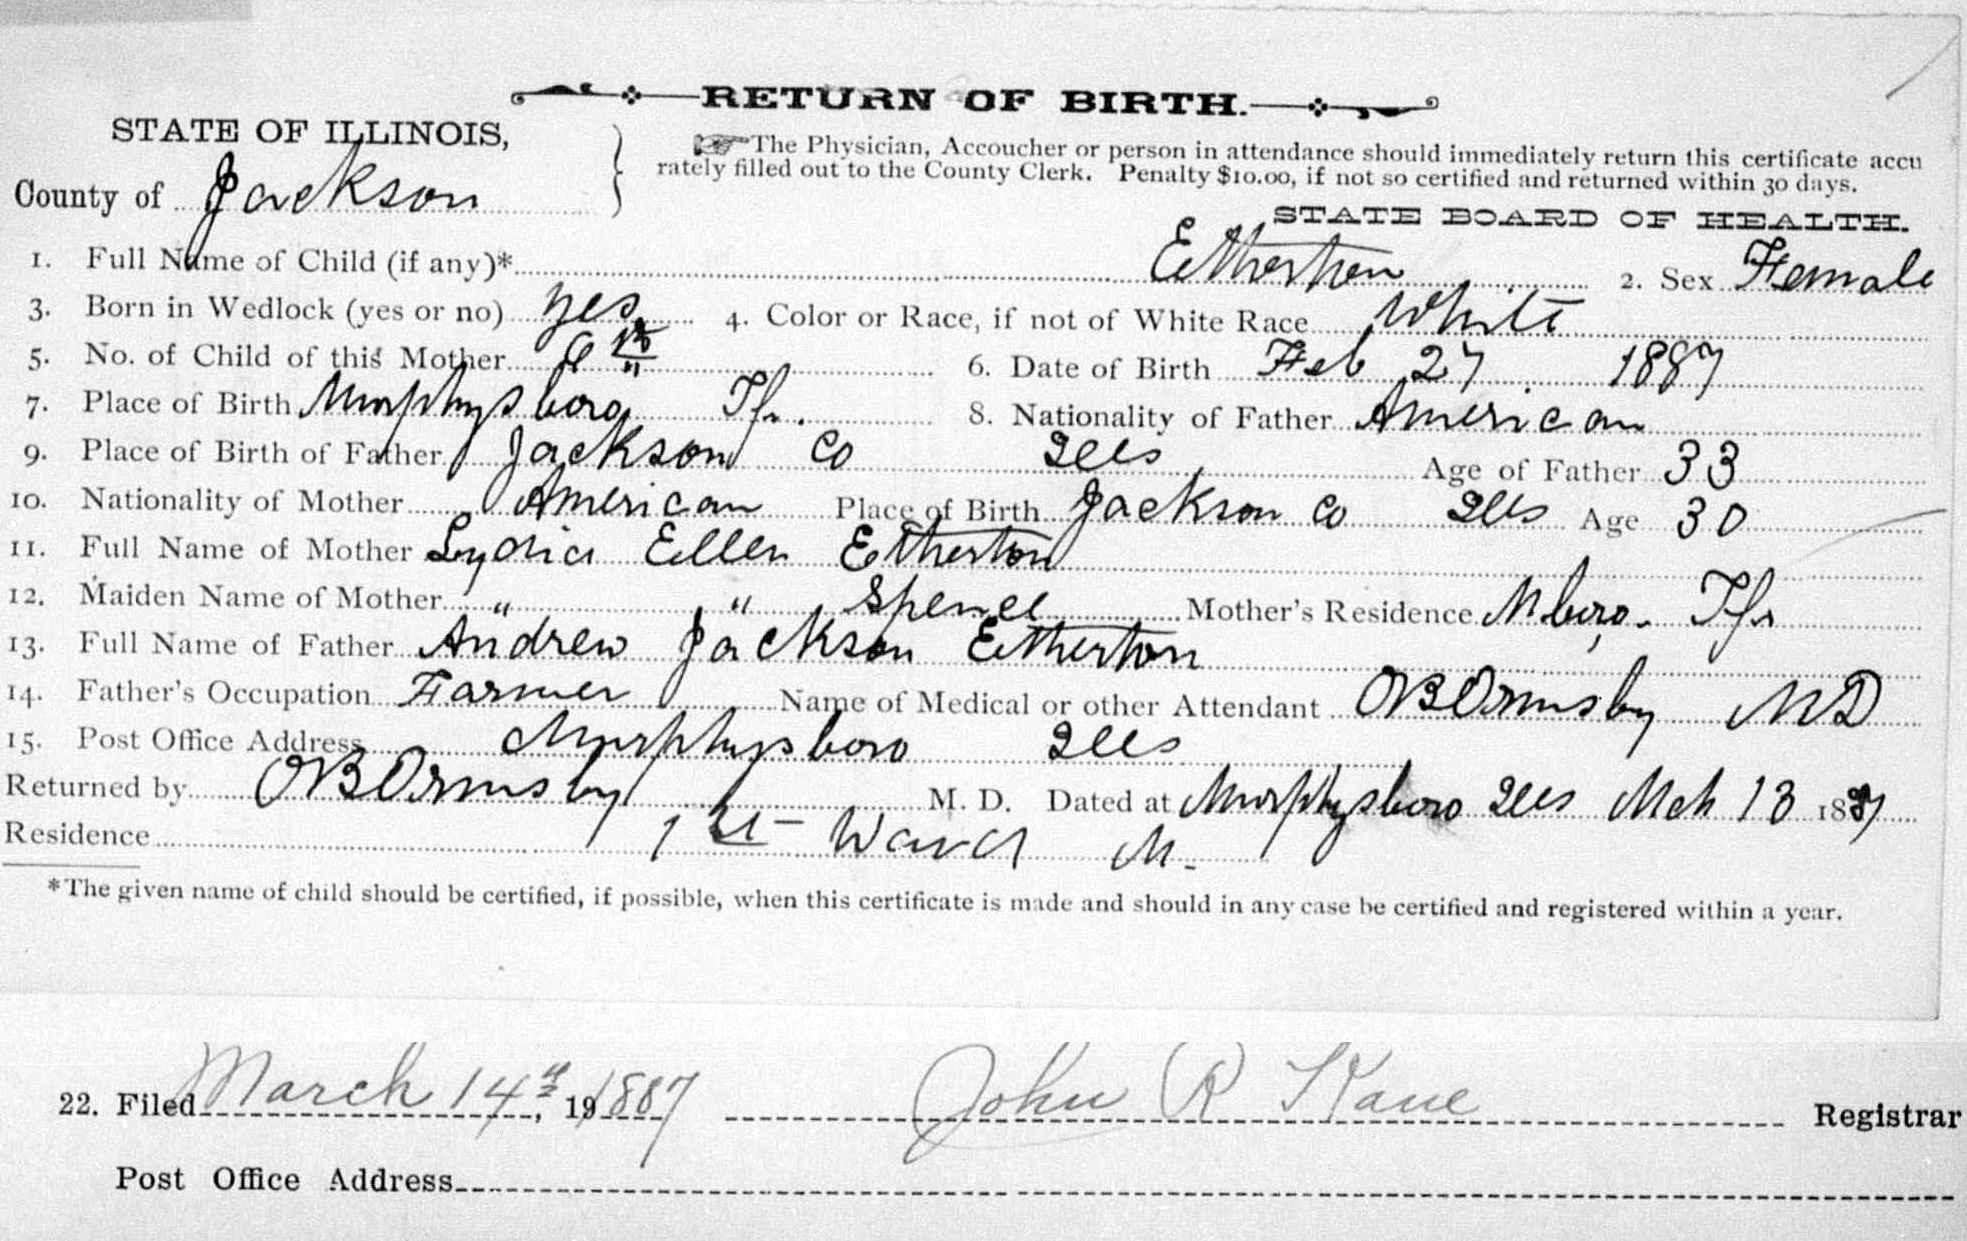 RETURN OF BIRTH.
STATE OF ILLINOIS,
County of Jackson
The Physician, Accoucher or person in attendance should immediately return this certificate accu
rately filled out to the County Clerk. Penalty $10.00, if not so certified and returned within 30 days.
STATE BOARD OF HEALTH.
1. Full Name of Child (if any)* Etherton 2. Sex Female
3. Born in Wedlock (yes or no) yes 4. Color or Race, if not of White Race White
5. No. of Child of this Mother 6. Date of Birth Feb 27 1887
7. Place of Birth Murphysboro Tp. 8. Nationality of Father American
9. Place of Birth of Father Jackson Co Ills Age of Father 33
10. Nationality of Mother American Place of Birth Jackson Co Ills Age 30
11. Full Name of Mother Lydia Ellen Etherton
12. Maiden Name of Mother " " Spence Mother's Residence Mboro. Tp
13. Full Name of Father Andrew Jackson Etherton
14. Father's Occupation Farmer Name of Medical or other Attendant OB Ormsby MD
15. Post Office Address Murphysboro Ills
Returned by OB Ormsby M. D. Dated at Murphysboro Ills Mch 13 1887
Residence 1st Ward M.
*The given name of child should be certified, if possible, when this certificate is made and should in any case be certified and registered within a year.
22. Filed March 14th, 19 1887 John R Kane Registrar
Post Office Address